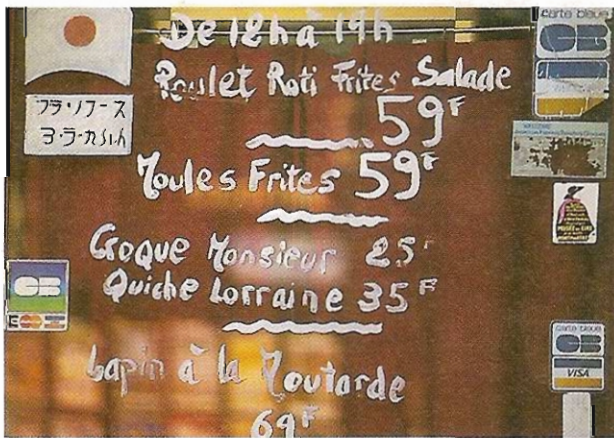 De 12h à 19h
Poulet Roti Frites Salade
59F
Moules Frites 59F
Croque Monsieur 25F
Quiche Lorraine 35F
Lapin à la Moutarde
69F
carte bleue
CB
carte bleue
CB
VISA
CB